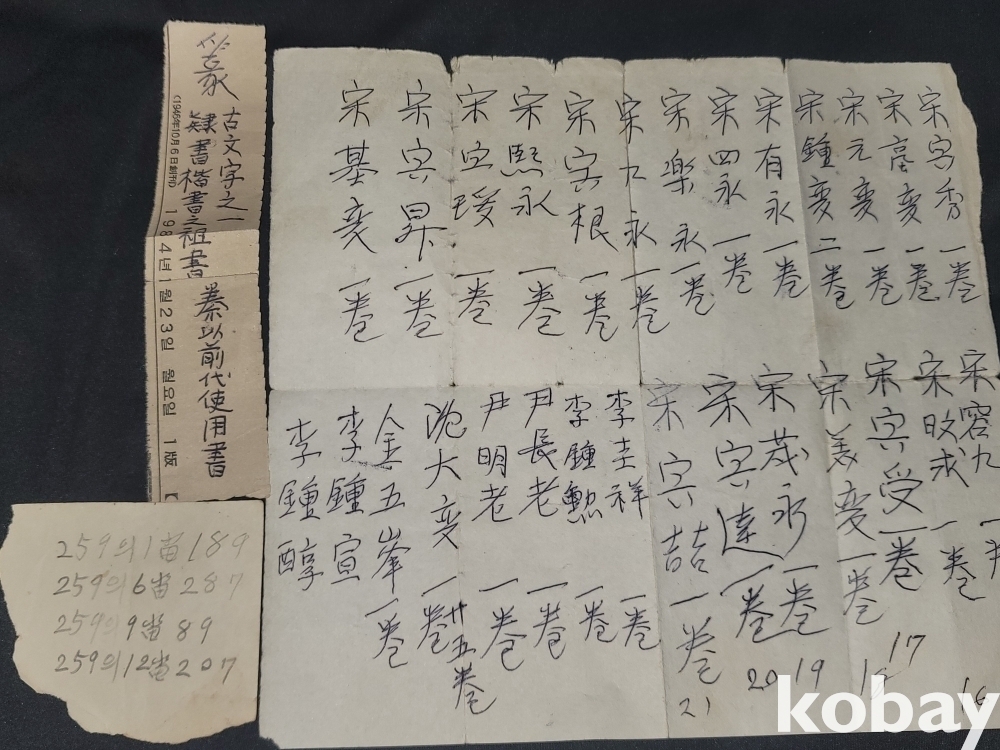 篆
古文字之一
隷書楷書之祖書
秦以前代使用書
(1946年10月6日創刊)
1984년 1월 23일 월요일 1版
259의1番189
259의6番287
259의9番89
259의12番207
宋 秀 一卷
宋高変 一卷
宋元変 一卷
宋鍾変 二卷
宋有永 一卷
宋四永 一卷
宋樂永 一卷
宋九永 一卷
宋寅根 一卷
宋熙永 一卷
宋寅瑗 一卷
宋寅昇 一卷
宋基変 一卷
宋容九 一
宋 求 一卷 16
宋寅受 一卷 17
宋義変 一卷 18
宋茂永 一卷 19
宋寅達 一卷 20
宋寅喆 一卷 21
李圭祥 一卷
李鍾勲 一卷
尹長老 一卷
尹明老 一卷
沈大変 一卷
廿五卷
金五峯 一卷
李鍾宣
李鍾醇
kobay